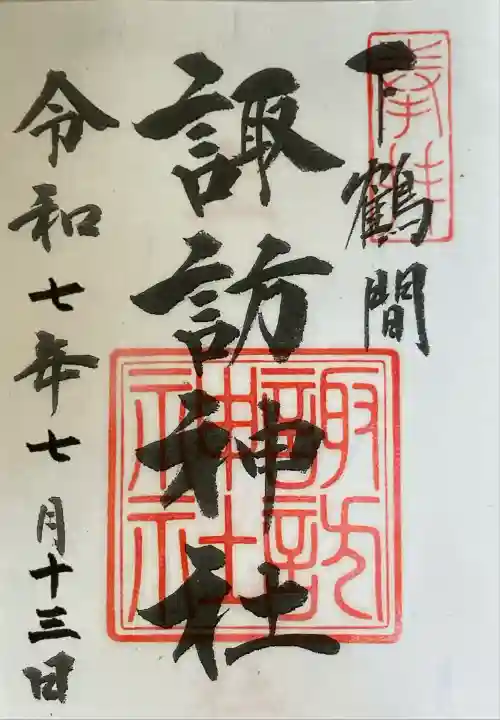 奉拝
下鶴間
諏訪神社
諏訪
神社
令和七年七月十三日